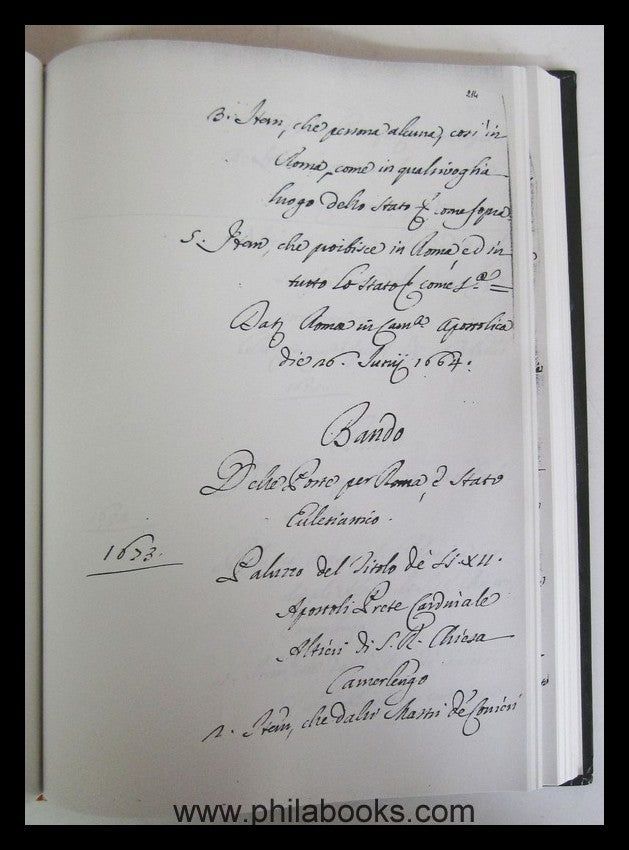 214
3. Item, che persona alcuna, cosi in
Roma, come in qualsivoglia
luogo dello Stato come sopra
5. Item, che proibisce in Roma, ed in
tutto lo Stato come s.ª
Dat. Romæ in Camª Apostolica
die 26. Junij 1664.
Bando
Delle Poste per Roma, è Stato
Eclesiastico.
1673.
Paluzzo del Titolo dè SS. XII.
Apostoli Prete Cardinale
Altieri di S. R. Chiesa
Camerlengo
1. Item, che dalli Mastri dè Corrieri
www.philabooks.com